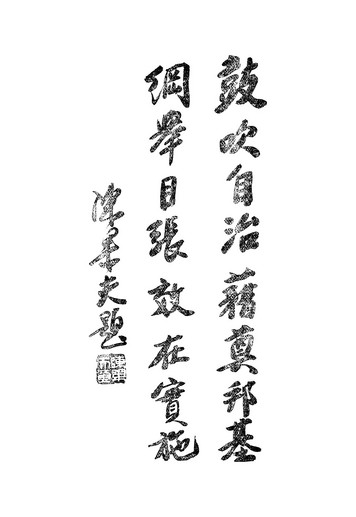 鼓吹自治藉奠邦基
綱舉目張效在實施
陳果夫題